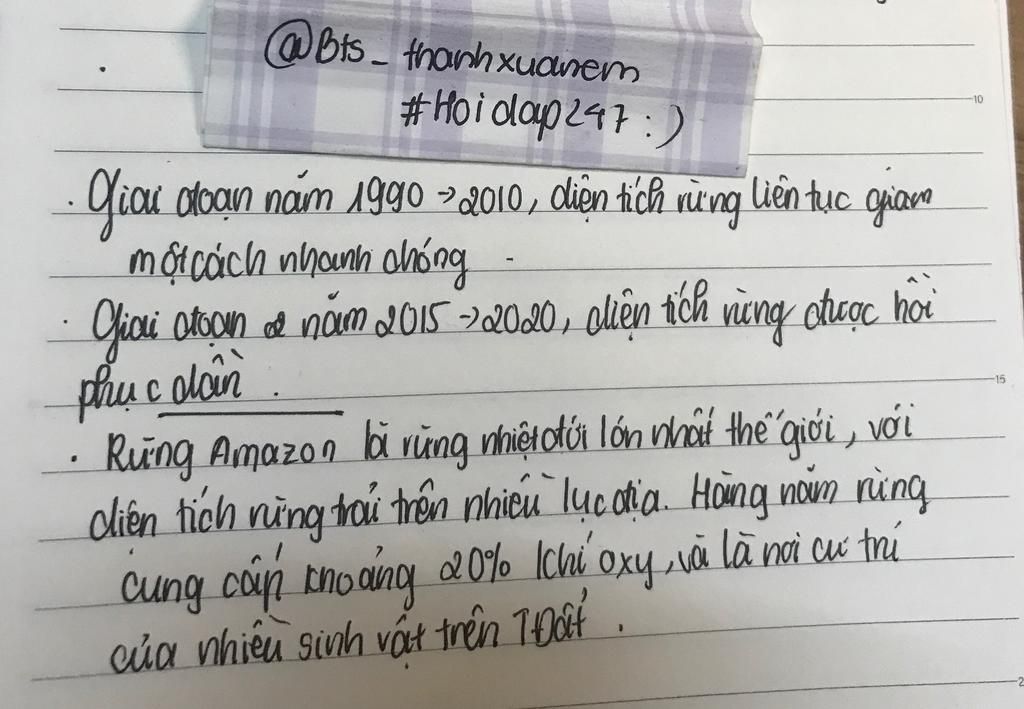 @Bts_thanhxuanem
#Hoidap247:)
10
. Giai đoạn năm 1990 → 2010, diện tích rừng liên tục giảm
một cách nhanh chóng
. Giai đoạn năm 2015 → 2020, diện tích rừng được hồi
phục dần.
15
. Rừng Amazon là rừng nhiệt đới lớn nhất thế giới, với
diện tích rừng trải trên nhiều lục địa. Hàng năm rừng
cung cấp khoảng 20% khí oxy, và là nơi cư trú
của nhiều sinh vật trên TĐất.